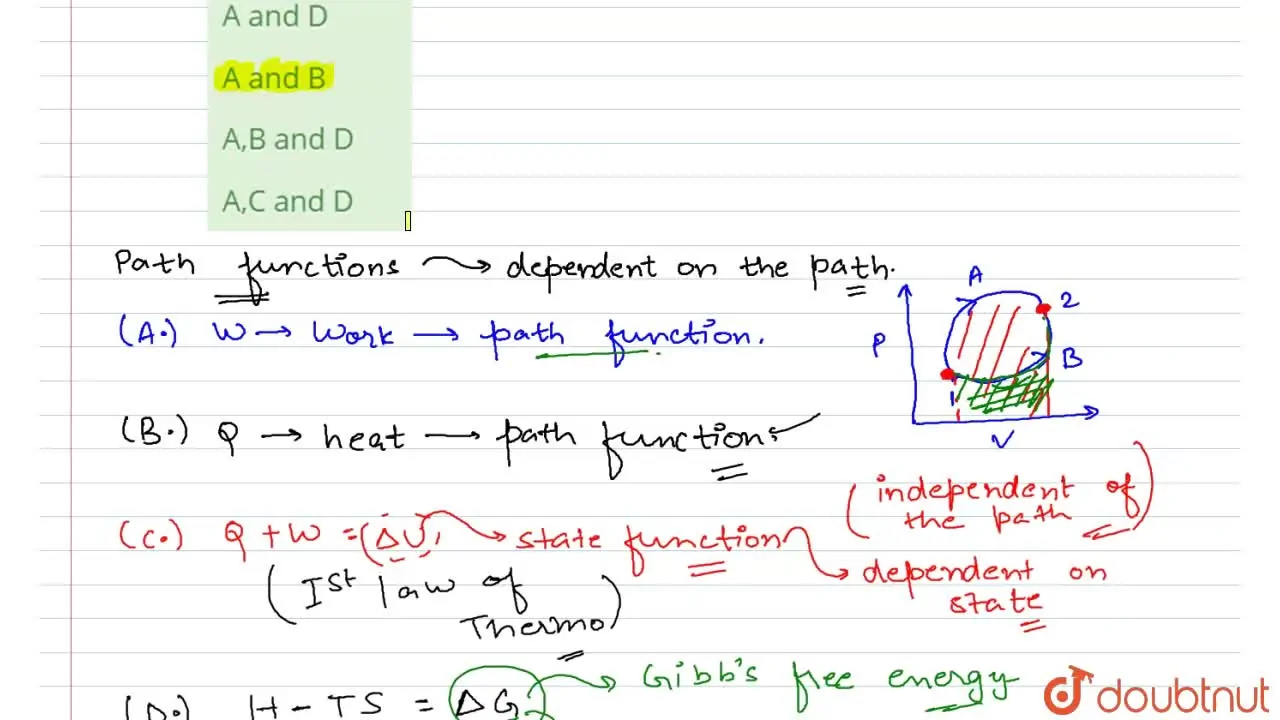 A and D
A and B
A,B and D
A,C and D
Path functions → dependent on the path.
(A.) W → Work → path function.
(B.) Q → heat → path function
(C.) Q + W = (ΔU) → state function → dependent on state
(independent of the path)
(Ist law of Thermo)
(D.) H - TS = ΔG → Gibb's free energy
A
2
P
B
1
V
doubtnut